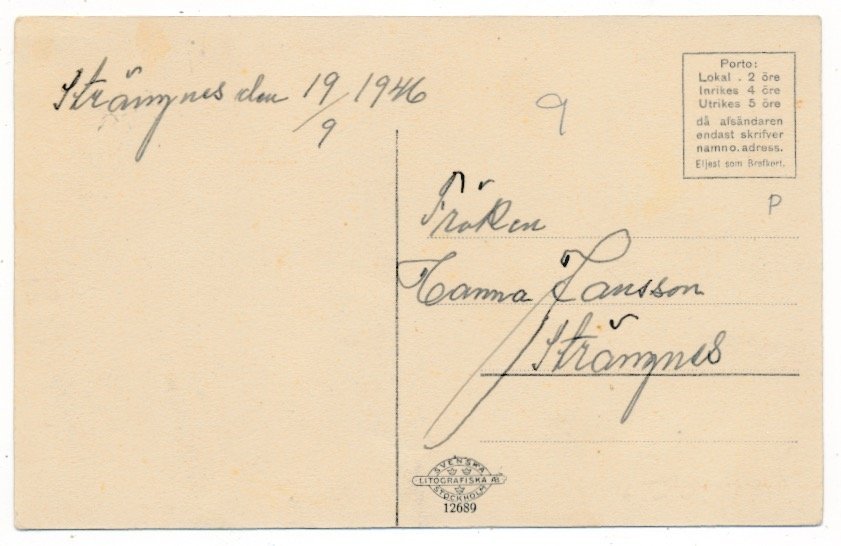 Strängnes den 19/9 1946
9
Porto:
Lokal . 2 öre
Inrikes 4 öre
Utrikes 5 öre
då afsändaren
endast skrifver
namn o. adress.
Eljest som Brefkort.
P
Fröken
Hanna Jansson
Strängnes
SVENSKA
LITOGRAFISKA AB
STOCKHOLM
12689